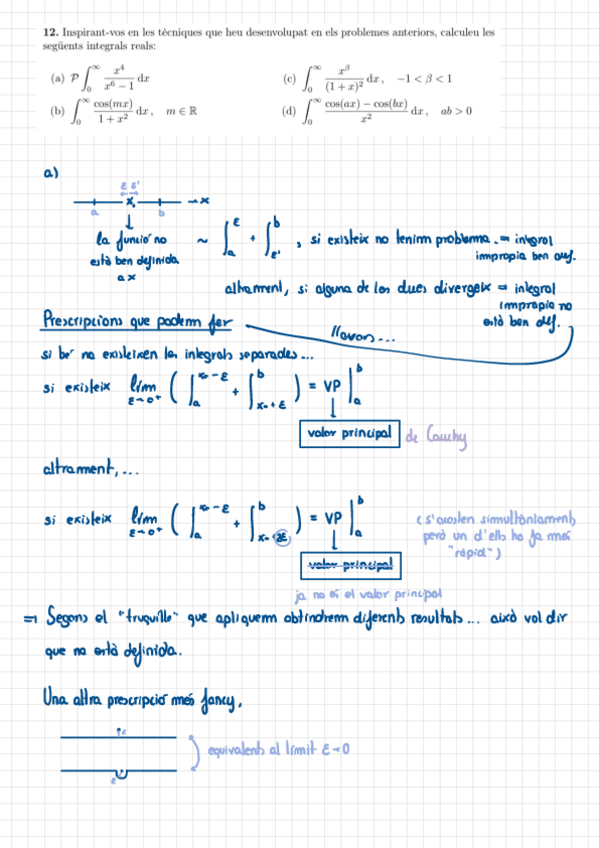 12. Inspirant-vos en les tècniques que heu desenvolupat en els problemes anteriors, calculeu les
següents integrals reals:
(a) P ∫₀^∞ x⁴/(x⁶ − 1) dx
(c) ∫₀^∞ x^β/(1 + x)² dx, −1 < β < 1
(b) ∫₀^∞ cos(mx)/(1 + x²) dx, m ∈ ℝ
(d) ∫₀^∞ (cos(ax) − cos(bx))/x² dx, ab > 0
a)
ε ε'
a x₀ b → x
↓
la funció no
està ben definida
a x
~ ∫ₐ^ε + ∫_ε'^b , si existeix no tenim problema. ⇒ integral
impropia ben def.
altrament, si alguna de les dues divergeix ⇒ integral
impropia no
està ben def.
Prescripcions que podem fer
llavors...
si bé no existeixen les integrals separades...
si existeix lím ε→0⁺ ( ∫ₐ^{x₀−ε} + ∫_{x₀+ε}^b ) = VP ∫ₐ^b
↓
valor principal de Cauchy
altrament,...
si existeix lím ε→0⁺ ( ∫ₐ^{x₀−ε} + ∫_{x₀+2ε}^b ) = VP ∫ₐ^b
(s'acosten simultàniament,
però un d'ells ho fa més
"ràpid")
↓
valor principal
ja no és el valor principal
⇒ Segons el "truquillo" que apliquem obtindrem diferents resultats... això vol dir
que no està definida.
Una altra prescripció més fancy.
↑ε
equivalents al límit ε→0
ε